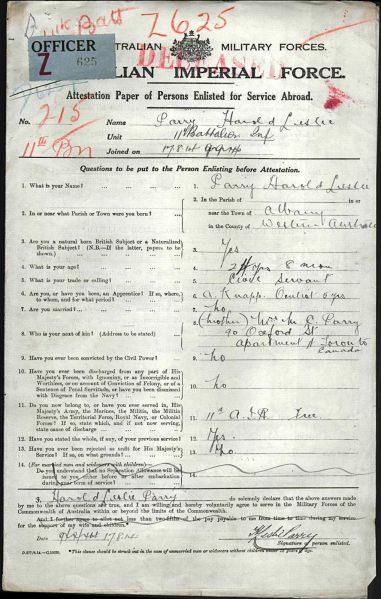 Z625
OFFICER
Z 625
AUSTRALIAN MILITARY FORCES.
DECEASED
AUSTRALIAN IMPERIAL FORCE.
Attestation Paper of Persons Enlisted for Service Abroad.
No. 215 Name Parry Harold Leslie
11th Bn Unit 11th Battalion Inf
Joined on 17.8.14
Questions to be put to the Person Enlisting before Attestation.
1. What is your Name? 1. Parry Harold Leslie
2. In or near what Parish or Town were you born? 2. In the Parish of in or
near the Town of Albany
in the County of Western Australia
3. Are you a natural born British Subject or a Naturalized British Subject? (N.B.—If the latter, papers to be shown). 3. Yes
4. What is your age? 4. 24 yrs 8 mon
5. What is your trade or calling? 5. Servant
6. Are you, or have you been, an Apprentice? If so, where, to whom, and for what period? 6. A. Knapp.
7. Are you married? 7. no
8. Who is your next of kin? (Address to be stated) 8. Parry
90 Oxford St
Apartment A Toronto
Canada
9. Have you ever been convicted by the Civil Power? 9. no
10. Have you ever been discharged from any part of His Majesty's Forces, with Ignominy, or as Incorrigible and Worthless, or on account of Conviction of Felony, or of a Sentence of Penal Servitude, or have you been dismissed with Disgrace from the Navy? 10. no
11. Do you now belong to, or have you ever served in, His Majesty's Army, the Marines, the Militia, the Militia Reserve, the Territorial Force, Royal Navy, or Colonial Forces? If so, state which, and if not now serving, state cause of discharge 11. 11th A.I.R.
12. Have you stated the whole, if any, of your previous service? 12. Yes.
13. Have you ever been rejected as unfit for His Majesty's Service? If so, on what grounds? 13. No
14. (For married men and widowers with children)
Do you understand that no Separation Allowance will be issued to you either before or after embarkation during your term of service? 14.
I, Harold Leslie Parry do solemnly declare that the above answers made by me to the above questions are true, and I am willing and hereby voluntarily agree to serve in the Military Forces of the Commonwealth of Australia within or beyond the limits of the Commonwealth.
And I further agree to allot not less than two-fifths of the pay payable to me from time to time during my service for the support of my wife and children.
Date 17.8.14
Parry
Signature of person enlisted.
*This clause should be struck out in the case of unmarried men or widowers without children under 18 years of age.